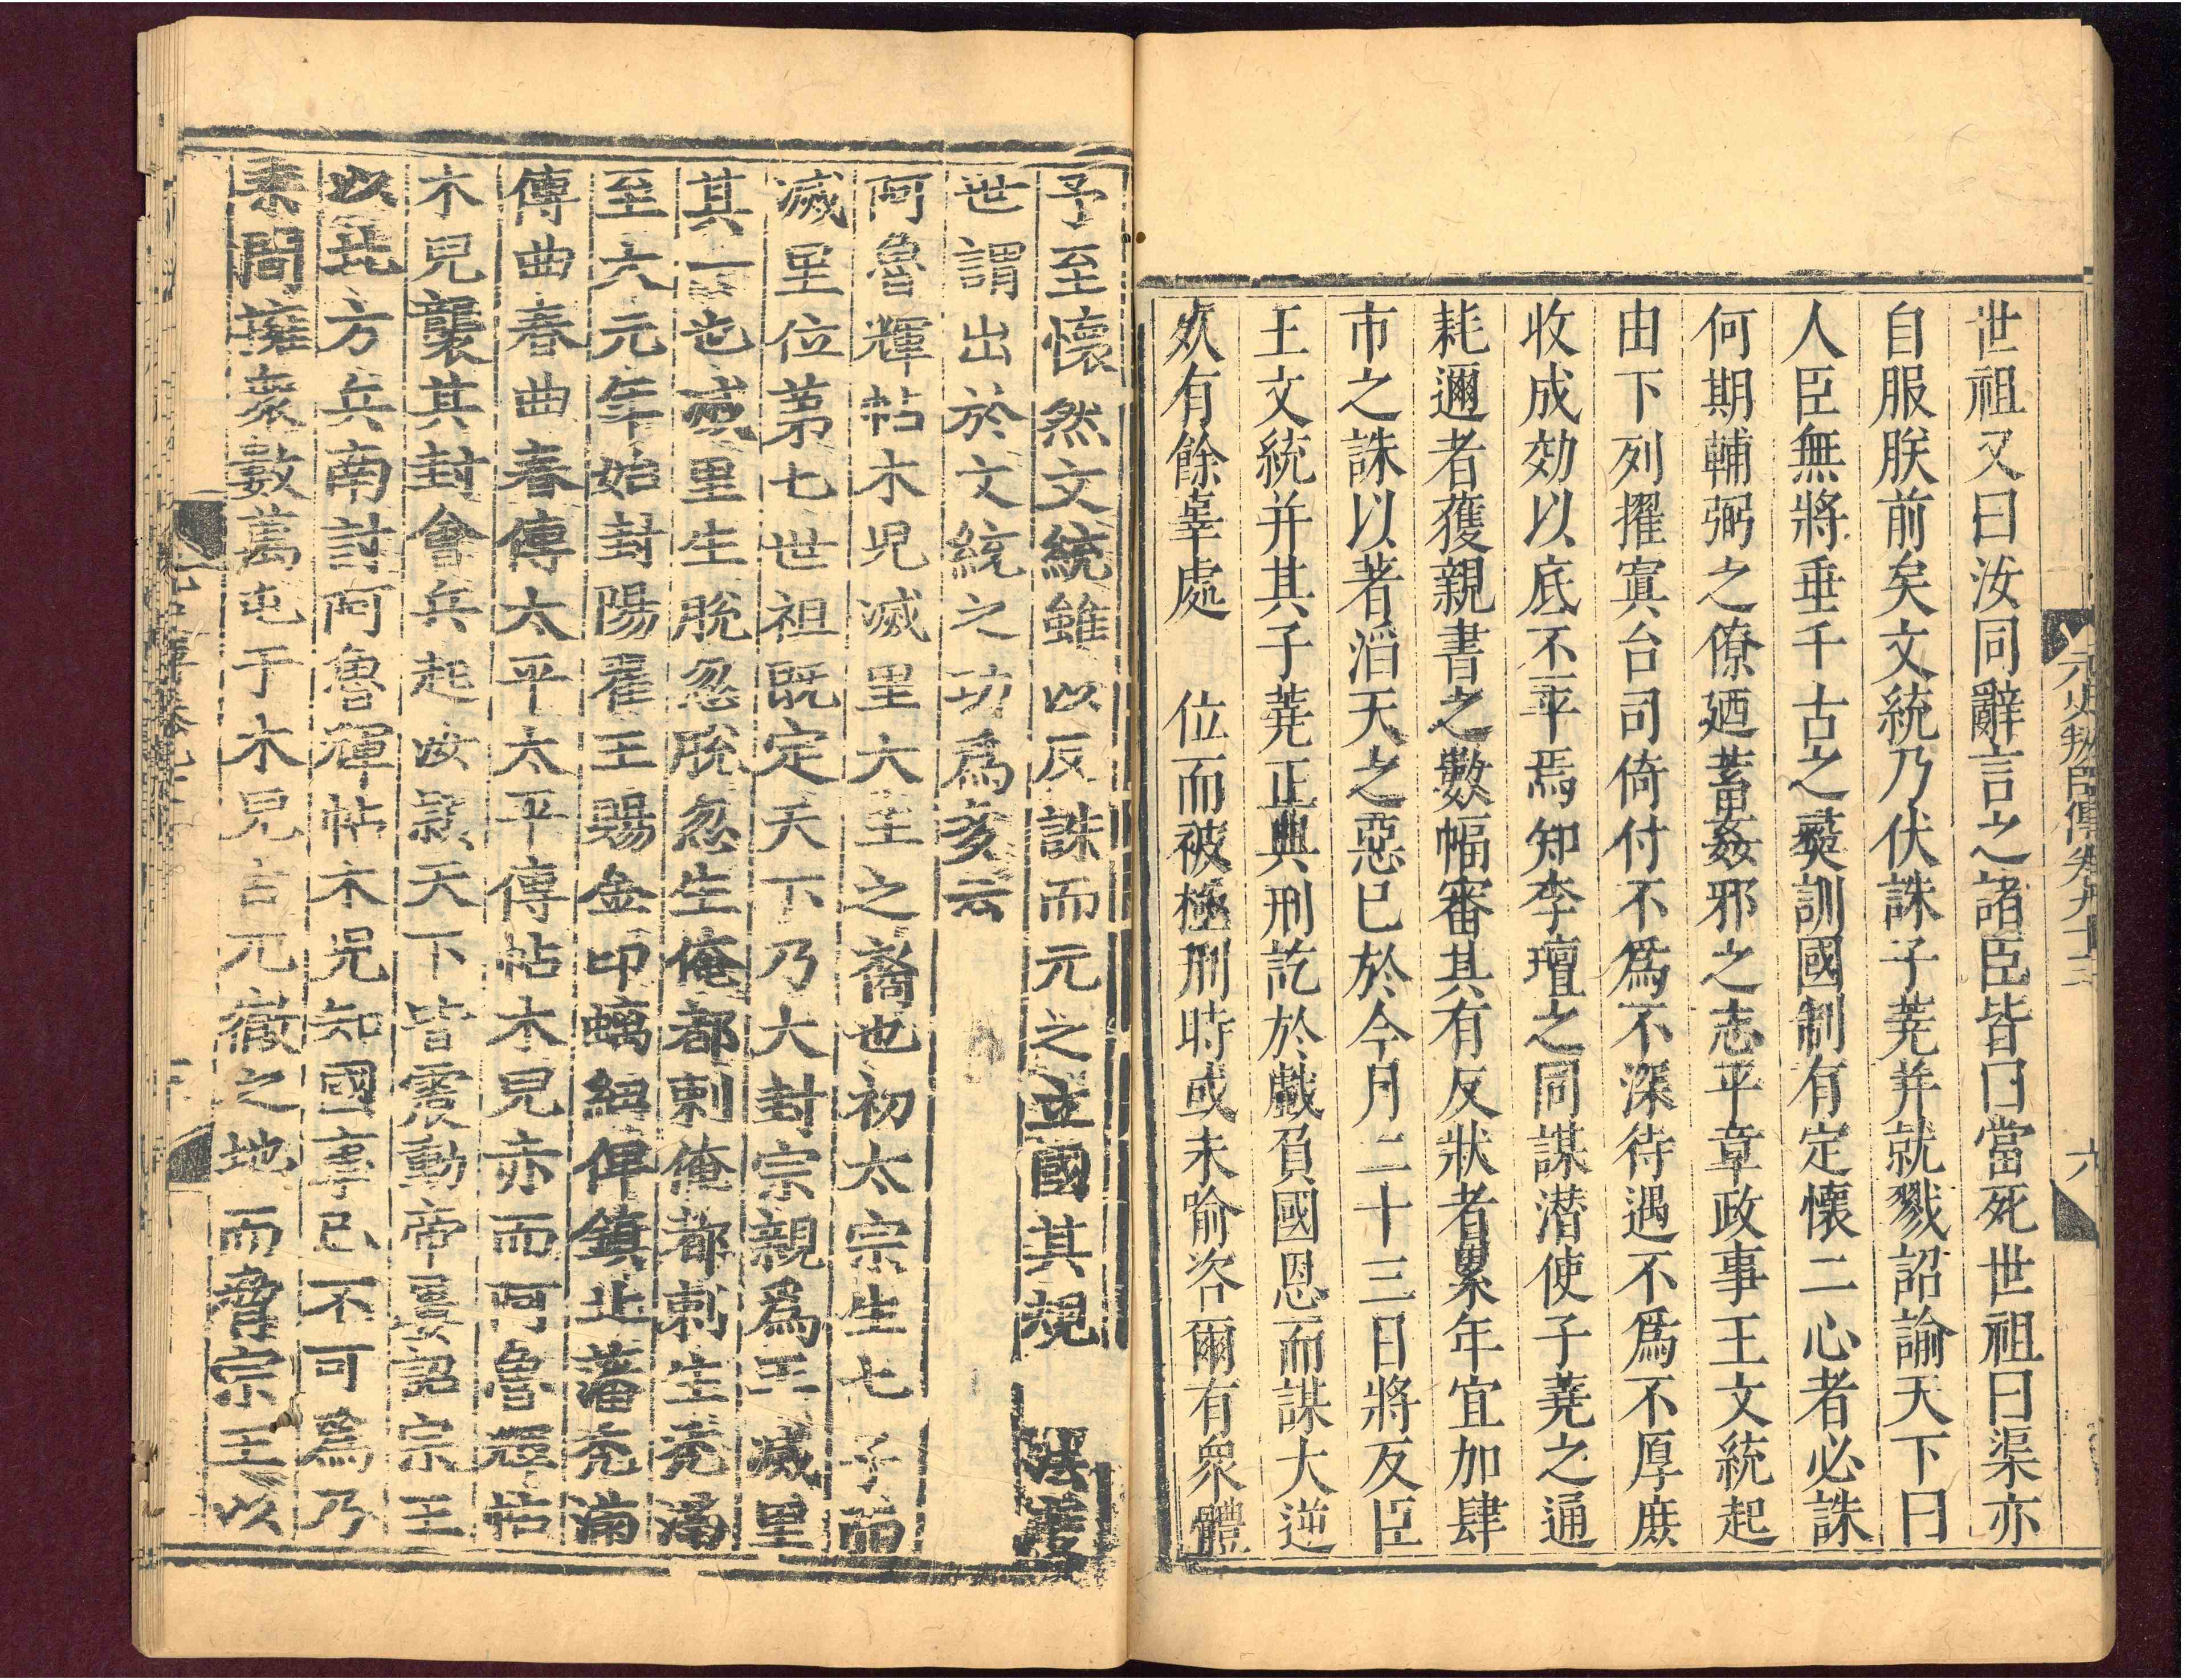 元史叛臣傳卷九十三 六
世祖又曰汝同辭言之諸臣皆曰當死世祖曰渠亦
自服朕前矣文統乃伏誅子蕘并就戮詔諭天下曰
人臣無將垂千古之彝訓國制有定懷二心者必誅
何期輔弼之僚廼蓄姦邪之志平章政事王文統起
由下列擢寘台司倚付不爲不深待遇不爲不厚庶
收成効以底不平焉知李璮之同謀潜使子蕘之通
耗邇者獲親書之數幅審其有反狀者累年宜加肆
市之誅以著滔天之惡已於今月二十三日將反臣
王文統并其子蕘正典刑訖於戲負國恩而謀大逆
死有餘辜處 位而被極刑時或未喻咨爾有衆體
予至懷然文統雖以反誅而元之立國其規 法度
世謂出於文統之功爲多云
阿魯輝帖木兒滅里大王之裔也初太宗生七子而
滅里位第七世祖既定天下乃大封宗親爲王滅里
其一也滅里生脫忽脫忽生俺都剌俺都剌生禿滿
至大元年始封陽翟王賜金印螭紐俾鎮北藩禿滿
傳曲春曲春傳太平太平傳帖木兒亦而阿魯輝帖
木兒襲其封會兵起汝潁天下皆震動帝屢詔宗王
以北方兵南討阿魯輝帖木兒知國事已不可爲乃
乘間擁衆數萬屯于木兒古兀徹之地而脅宗王以